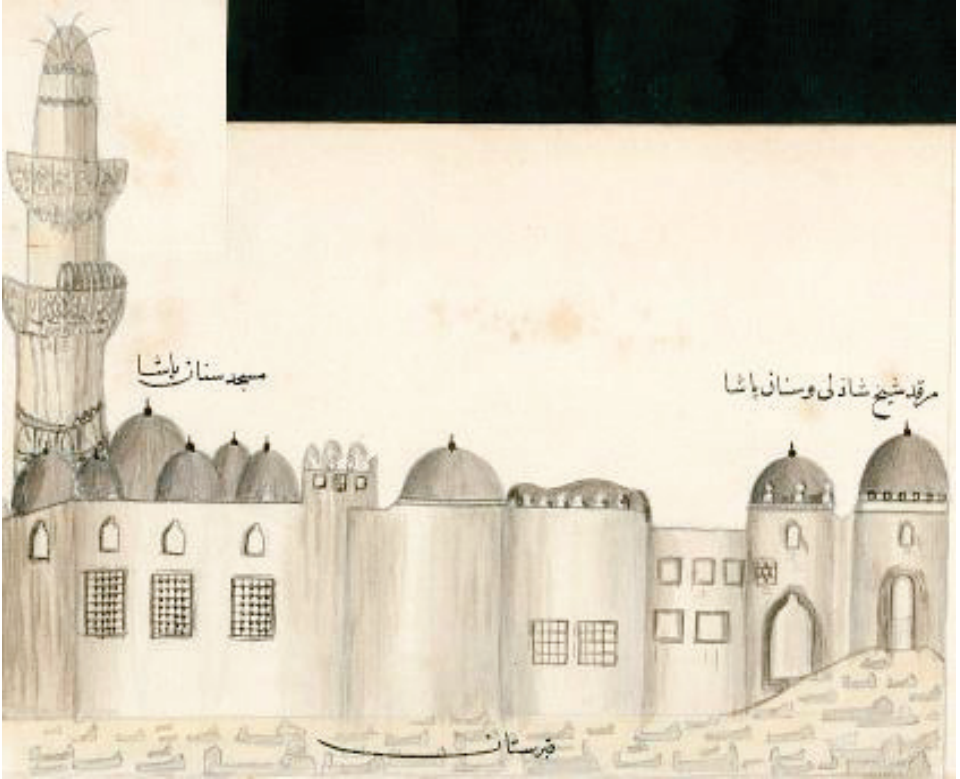 مسجد سنان پاشا
مرقد شیخ شاذلی و سنان پاشا
قبرستان